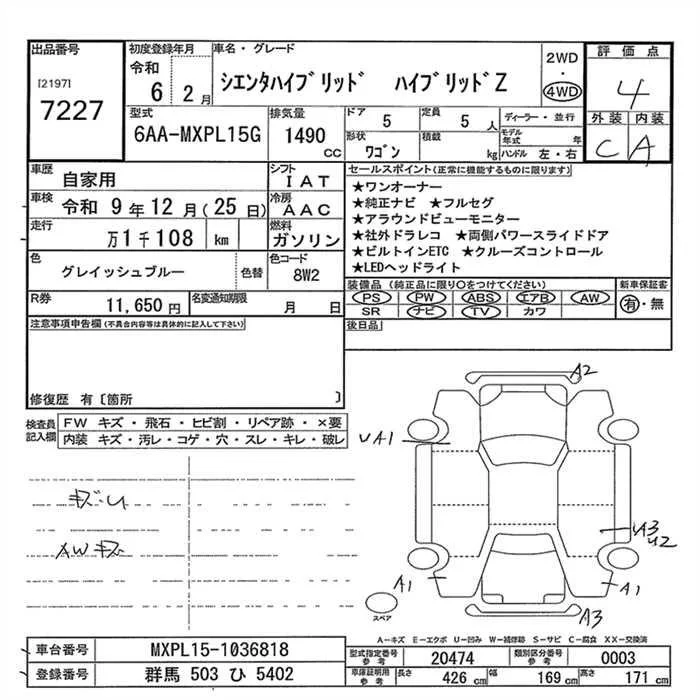 出品番号
[2197]
7227
初度登録年月
令和 6 2 月
車名・グレード
シエンタハイブリッド ハイブリッドZ
2WD
・
4WD
評価点
4
外装 内装
C A
型式
6AA-MXPL15G
排気量
1490 CC
ドア
5
定員
5 人
形状
ワゴン
積載
kg
ディーラー・並行
モデル年式 年
ハンドル 左・右
車歴
自家用
シフト
IAT
車検
令和 9年 12月 (25日)
冷房
AAC
走行
万1千108 km
燃料
ガソリン
色
グレイッシュブルー
色替
色コード
8W2
R券
11,650 円
名変通知期限
月 日
セールスポイント(正常に機能するものに限ります)
★ワンオーナー
★純正ナビ ★フルセグ
★アラウンドビューモニター
★社外ドラレコ ★両側パワースライドドア
★ビルトインETC ★クルーズコントロール
★LEDヘッドライト
装備品 (純正品に限り○をつけてください)
PS PW ABS エアB AW
SR ナビ TV カワ
新車保証書
有・無
後日品
注意事項申告欄(不具合内容等は具体的に記入して下さい)
修復歴 有〔箇所 〕
検査員記入欄
FW キズ・飛石・ヒビ割・リペア跡・×要
内装 キズ・汚レ・コゲ・穴・スレ・キレ・破レ
キズ・U
AWキズ
A2
UA1
U3
U2
A1
A1
A3
スペア
A-キズ E-エクボ U-凹み W-補修跡 S-サビ C-腐食 XX-交換済
車台番号
MXPL15-1036818
登録番号
群馬 503 ひ 5402
型式指定番号 参考
20474
類別区分番号 参考
0003
車庫証明用 参考
長さ 426 cm
幅 169 cm
高さ 171 cm